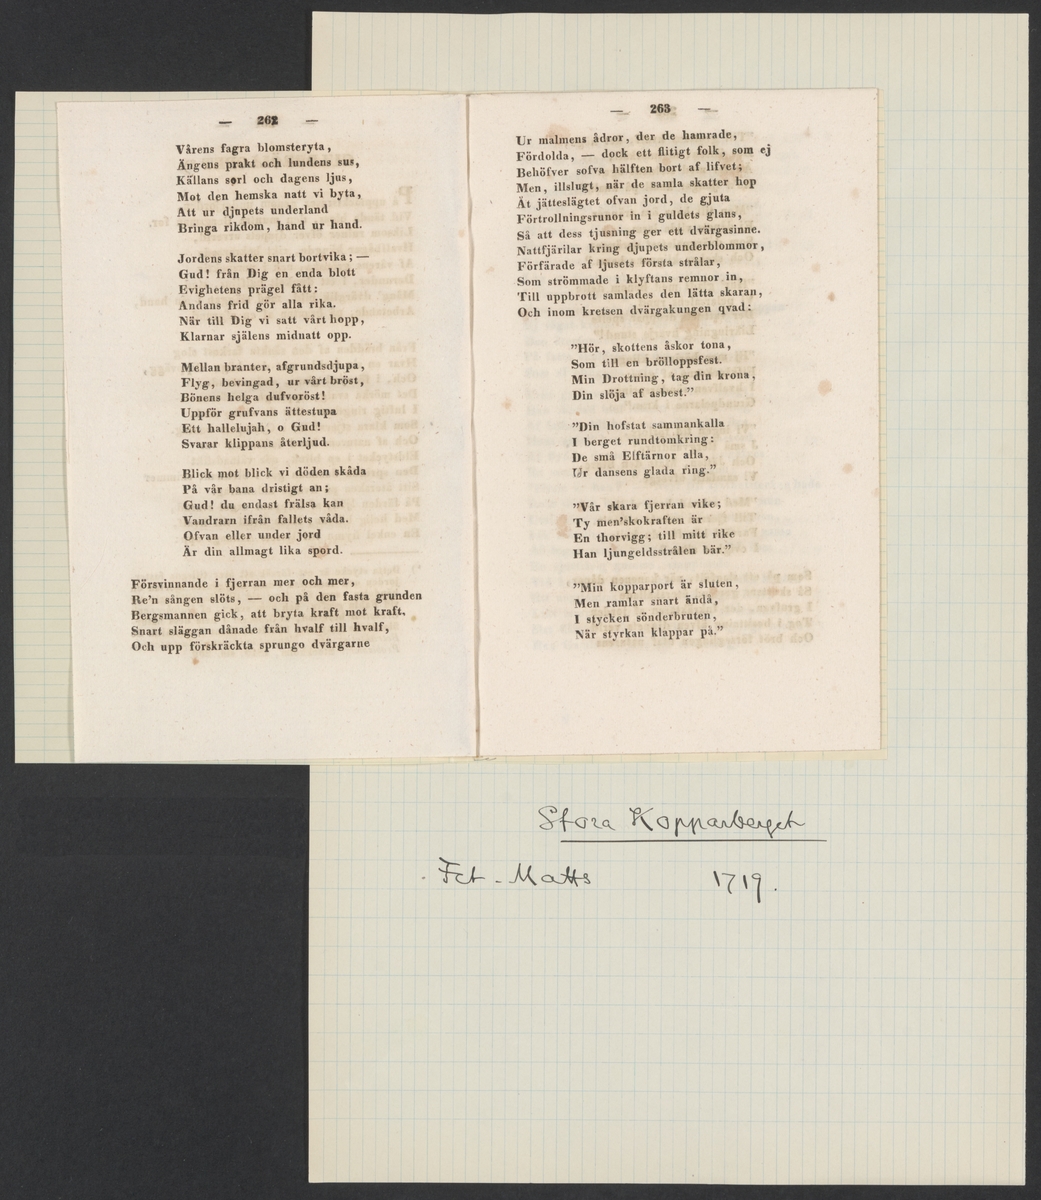 — 262 —
Vårens fagra blomsteryta,
Ängens prakt och lundens sus,
Källans sorl och dagens ljus,
Mot den hemska natt vi byta,
Att ur djupets underland
Bringa rikdom, hand ur hand.
Jordens skatter snart bortvika; —
Gud! från Dig en enda blott
Evighetens prägel fått:
Andans frid gör alla rika.
När till Dig vi satt vårt hopp,
Klarnar själens midnatt opp.
Mellan branter, afgrundsdjupa,
Flyg, bevingad, ur vårt bröst,
Bönens helga dufvoröst!
Uppför grufvans ättestupa
Ett hallelujah, o Gud!
Svarar klippans återljud.
Blick mot blick vi döden skåda
På vår bana dristigt an;
Gud! du endast frälsa kan
Vandrarn ifrån fallets våda.
Ofvan eller under jord
Är din allmagt lika spord.
Försvinnande i fjerran mer och mer,
Re'n sången slöts, — och på den fasta grunden
Bergsmannen gick, att bryta kraft mot kraft.
Snart släggan dånade från hvalf till hvalf,
Och upp förskräckta sprungo dvärgarne
— 263 —
Ur malmens ådror, der de hamrade,
Fördolda, — dock ett flitigt folk, som ej
Behöfver sofva hälften bort af lifvet;
Men, illslugt, när de samla skatter hop
Åt jätteslägtet ofvan jord, de gjuta
Förtrollningsrunor in i guldets glans,
Så att dess tjusning ger ett dvärgasinne.
Nattfjärilar kring djupets underblommor,
Förfärade af ljusets första strålar,
Som strömmade i klyftans remnor in,
Till uppbrott samlades den lätta skaran,
Och inom kretsen dvärgakungen qvad:
"Hör, skottens åskor tona,
Som till en brölloppsfest.
Min Drottning, tag din krona,
Din slöja af asbest."
"Din hofstat sammankalla
I berget rundtomkring:
De små Elftärnor alla,
Ur dansens glada ring."
"Vår skara fjerran vike;
Ty men'skokraften är
En thorvigg; till mitt rike
Han ljungeldsstrålen bär."
"Min kopparport är sluten,
Men ramlar snart ändå,
I stycken sönderbruten,
När styrkan klappar på."
Stora Kopparberget
Fet-Matts 1719.